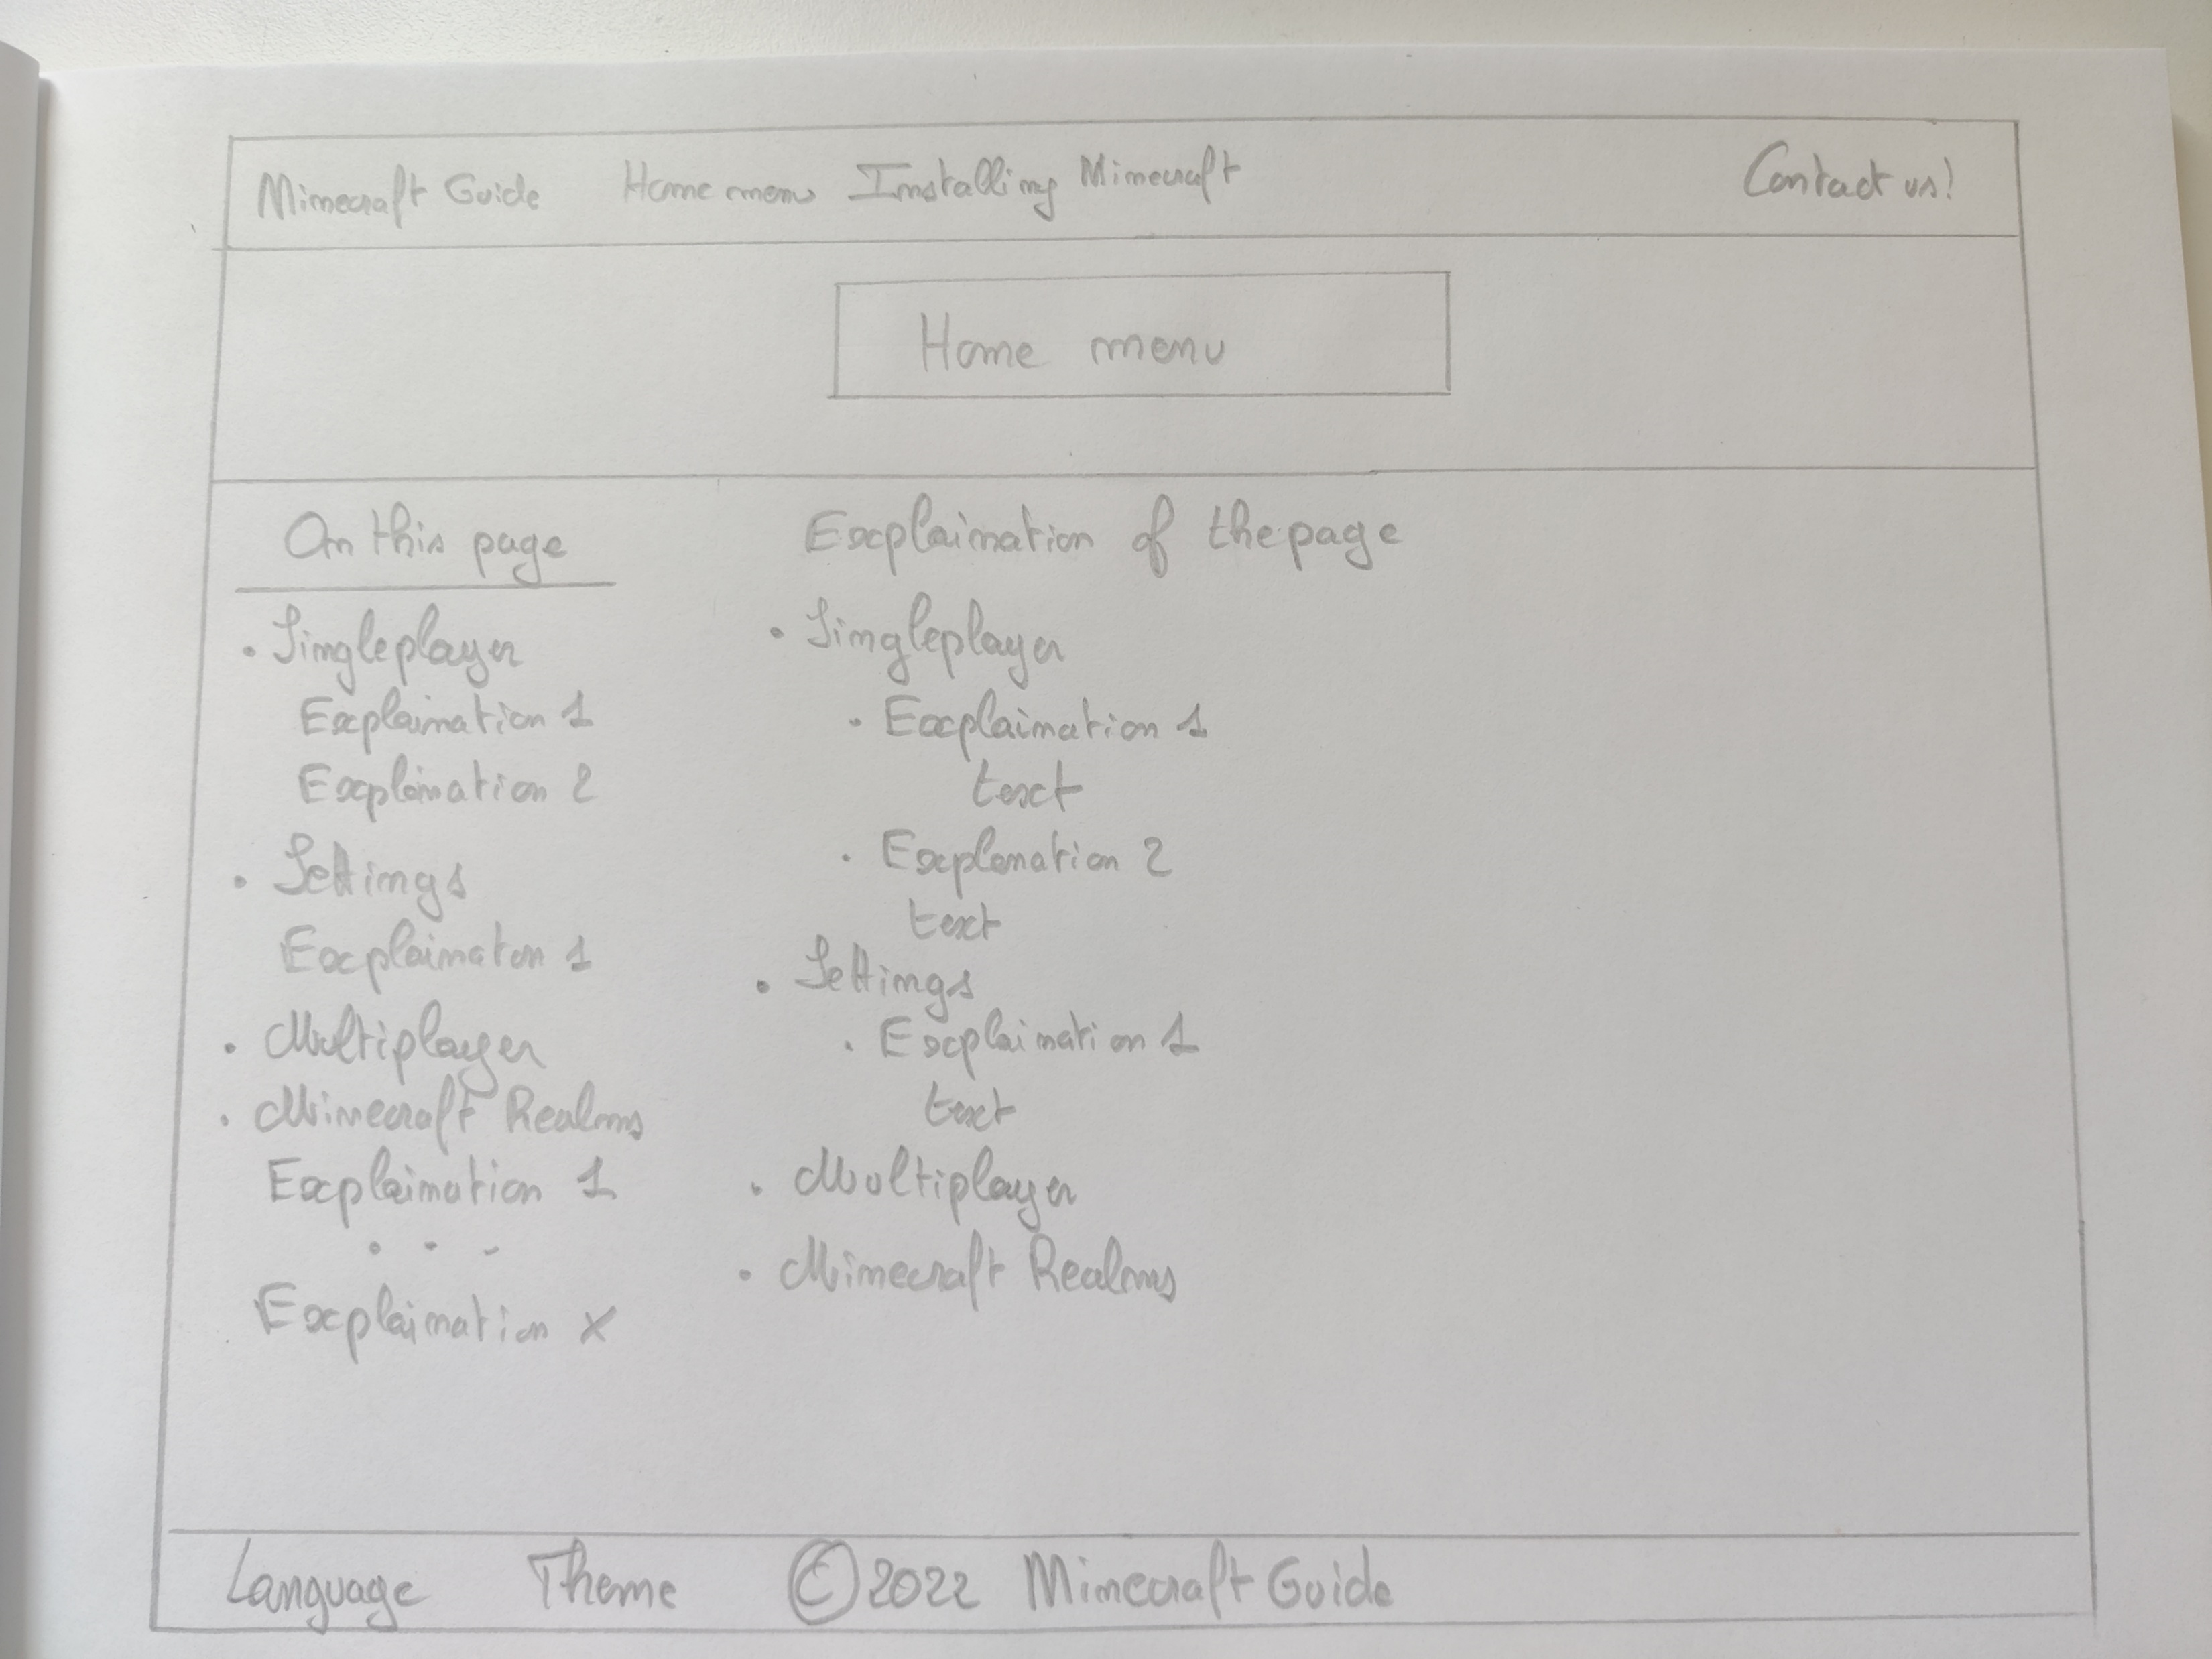 Minecraft Guide Home menu Installing Minecraft Contact us!
Home menu
On this page
• Singleplayer
Explaination 1
Explaination 2
• Settings
Explainaton 1
• Multiplayer
• Minecraft Realms
Explaination 1
. . .
Explaination X
Explaination of the page
• Singleplayer
• Explaination 1
text
• Explanation 2
text
• Settings
• Explaination 1
text
• Multiplayer
• Minecraft Realms
Language Theme © 2022 Minecraft Guide